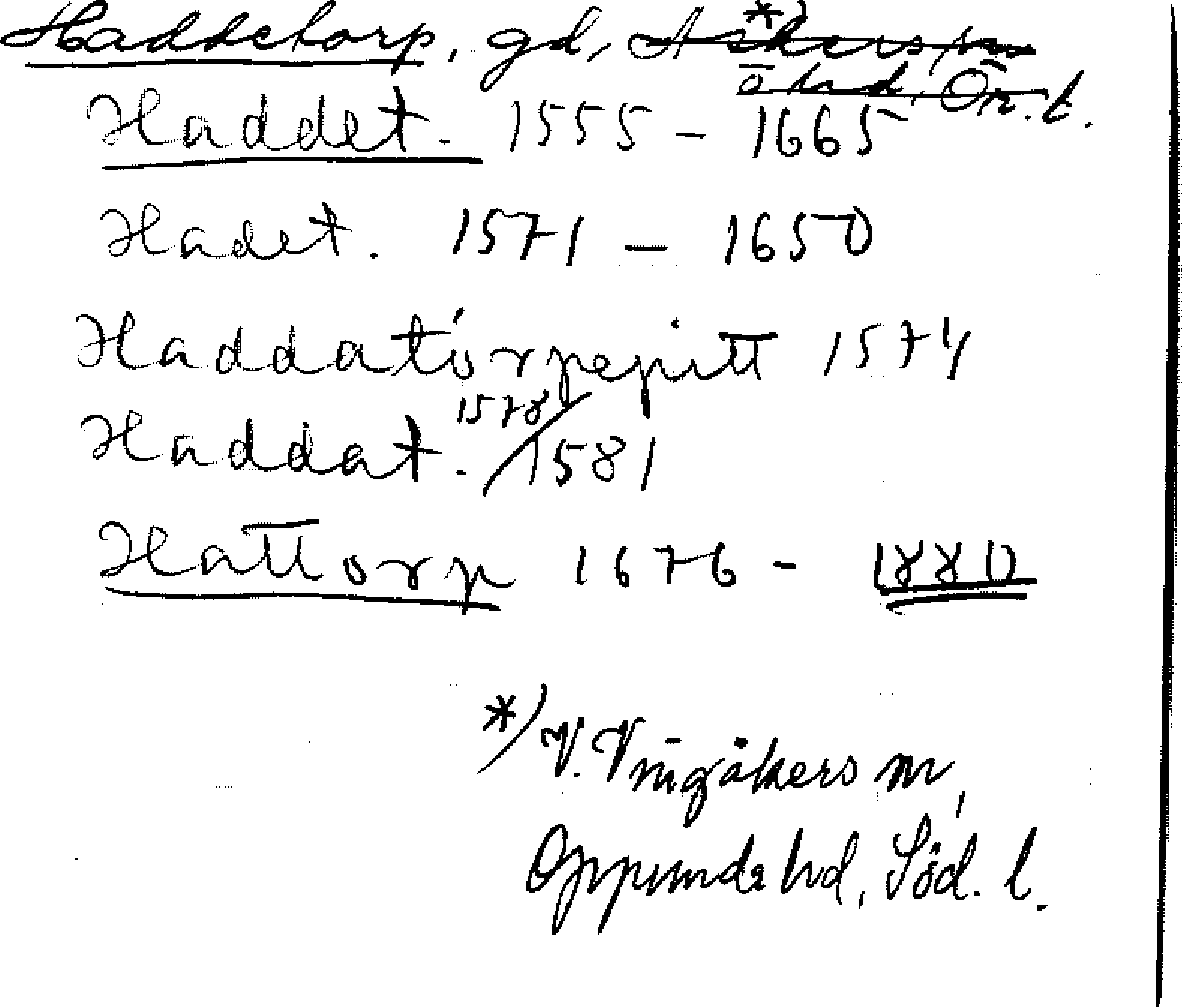 Haddetorp, gd, Askers sn *)
ö hd, Ör. l.
Haddet. 1555 - 1665
Hadet. 1571 - 1650
Haddatórpepitt 1574
Haddat. 1578/1581
Hattorp 1676 - 1880
*) V. Vingåkers sn,
Oppunda hd, Söd. l.